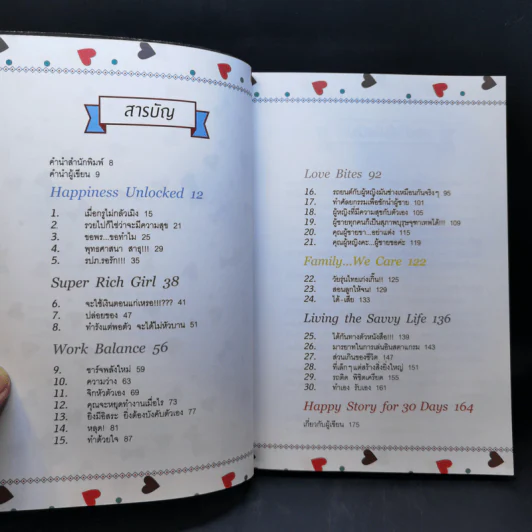 สารบัญ
คำนำสำนักพิมพ์ 8
คำนำผู้เขียน 9
Happiness Unlocked 12
1. เมื่อกูไม่กลัวเมิง 15
2. รวยไปก็ใช่ว่าจะมีความสุข 21
3. ขอพร...ขอทำไม 25
4. พุทธศาสนา สาธุ!!! 29
5. รปภ.รอรัก!!! 35
Super Rich Girl 38
6. จะใช้เงินตอนแก่เหรอ!!!??? 41
7. ปล่อยของ 47
8. ทำรังแต่พอตัว จะได้ไม่หัวบาน 51
Work Balance 56
9. ชาร์จพลังใหม่ 59
10. ความว่าง 63
11. จิกหัวตัวเอง 69
12. คุณจะหยุดทำงานเมื่อไร 73
13. ยิ่งมีอิสระ ยิ่งต้องบังคับตัวเอง 77
14. หลุด! 81
15. ทำด้วยใจ 87
Love Bites 92
16. รถยนต์กับผู้หญิงมันช่างเหมือนกันจริงๆ 95
17. ทำศัลยกรรมเพื่อชักนำผู้ชาย 101
18. ผู้หญิงที่มีความสุขกับตัวเอง 105
19. ผู้ชายทุกคนก็เป็นสุภาพบุรุษจุฑาเทพได้!!! 109
20. คุณผู้ชายขา...อย่าแต่ง 115
21. คุณผู้หญิงคะ...ผู้ชายขอค่ะ 119
Family...We Care 122
22. วัยรุ่นไทยเก่งเกิ๊น!! 125
23. สอนลูกให้จน! 129
24. ได้-เสีย 133
Living the Savvy Life 136
25. ได้กันทางตัวหนังสือ!!! 139
26. มารยาทในการเล่นอินสตาแกรม 143
27. ส่วนเกินของชีวิต 147
28. ที่เด็กๆ แต่สร้างสิ่งยิ่งใหญ่ 151
29. รถติด พิชิตเครียด 155
30. ทำเอง รับเอง 161
Happy Story for 30 Days 164
เกี่ยวกับผู้เขียน 175